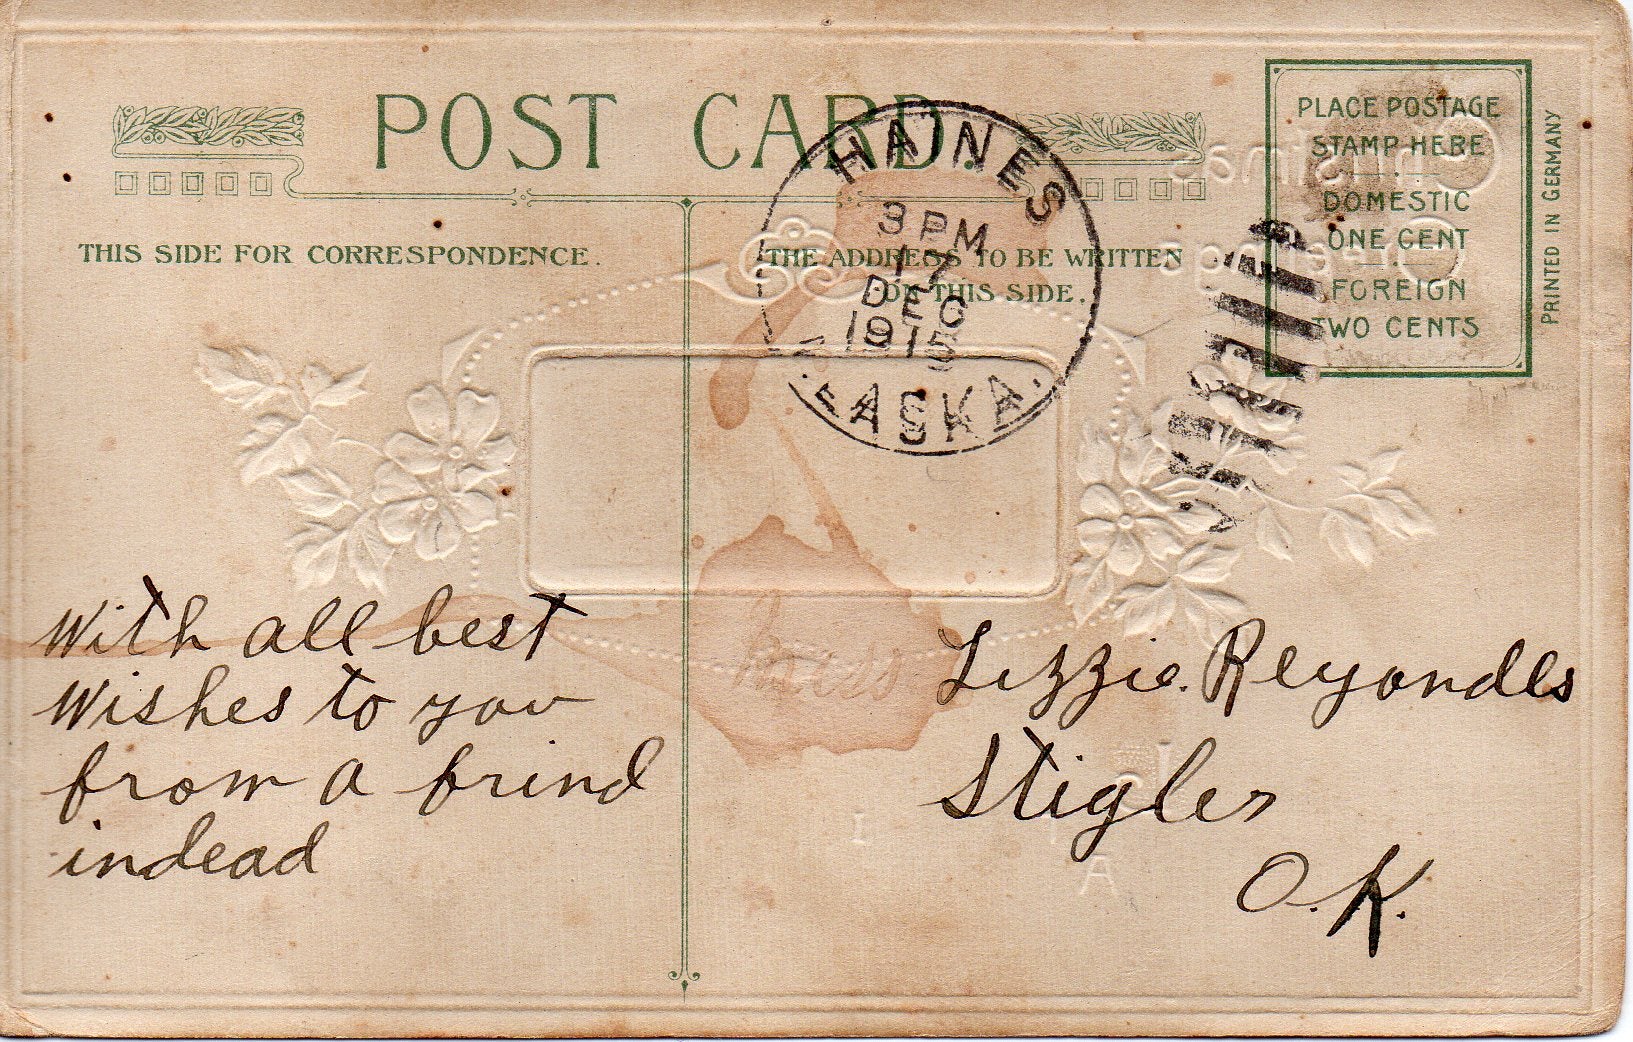 POST CARD.
THIS SIDE FOR CORRESPONDENCE.
THE ADDRESS TO BE WRITTEN
ON THIS SIDE.
HAINES
3 PM
17
DEC
1915
ALASKA.
PLACE POSTAGE
STAMP HERE
DOMESTIC
ONE CENT
FOREIGN
TWO CENTS
PRINTED IN GERMANY
Christmas
Greetings
With all best
Wishes to you
from a frind
indead
Lizzie. Reyondles
Stigler
O.K.